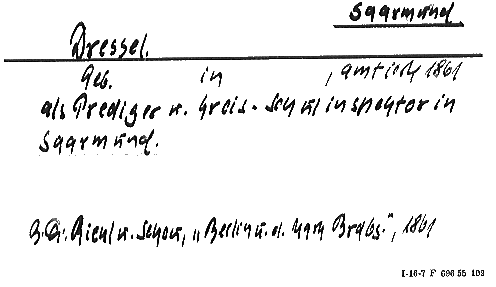 Saarmund
Dressel.
Geb. in , amtiert 1861
als Prediger u. Kreis-Schulinspektor in
Saarmund.
Riehl u. Scheu, „Berlin u. d. Mark Brdbg.", 1861
I-16-7 F 696 55 109